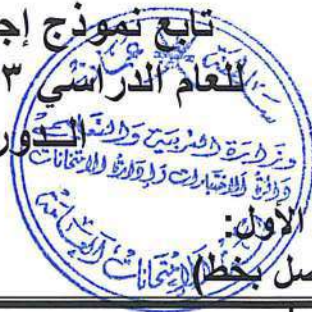 تابع نموذج إج
للعام الدراسي ٣
الدور
وزارة التربية والتعليم
دائرة الاختبارات وإدارة الامتحانات
الأول:
صل بخط)